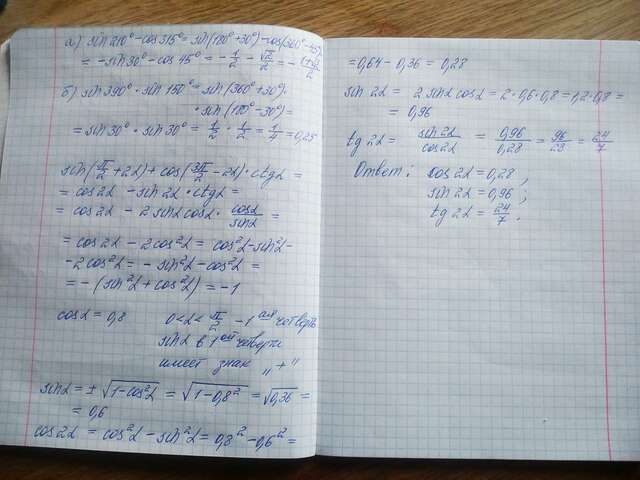 а) sin 210° - cos 315° = sin(180° + 30°) - cos(360° - 45°)
= - sin 30° - cos 45° = - 1/2 - √2/2 = - (1+√2)/2
б) sin 390° · sin 150° = sin(360° + 30°) ·
· sin(180° - 30°) =
= sin 30° · sin 30° = 1/2 · 1/2 = 1/4 = 0,25
sin(π/2 + 2α) + cos(3π/2 - 2α) · ctg α =
= cos 2α - sin 2α · ctg α =
= cos 2α - 2 sin α cos α · cos α/sin α =
= cos 2α - 2cos²α = cos²α - sin²α -
- 2cos²α = - sin²α - cos²α =
= - (sin²α + cos²α) = -1
cos α = 0,8 0 < α < π/2 - 1 ая четверть
sin α в 1 ой четверти
имеет знак „+"
sin α = ± √(1 - cos²α) = √(1 - 0,8²) = √0,36 =
= 0,6
cos 2α = cos²α - sin²α = 0,8² - 0,6² =
= 0,64 - 0,36 = 0,28
sin 2α = 2 sin α cos α = 2 · 0,6 · 0,8 = 1,2 · 0,8 =
= 0,96
tg 2α = sin 2α/cos 2α = 0,96/0,28 = 96/28 = 24/7
Ответ: cos 2α = 0,28 ;
sin 2α = 0,96 ;
tg 2α = 24/7 .